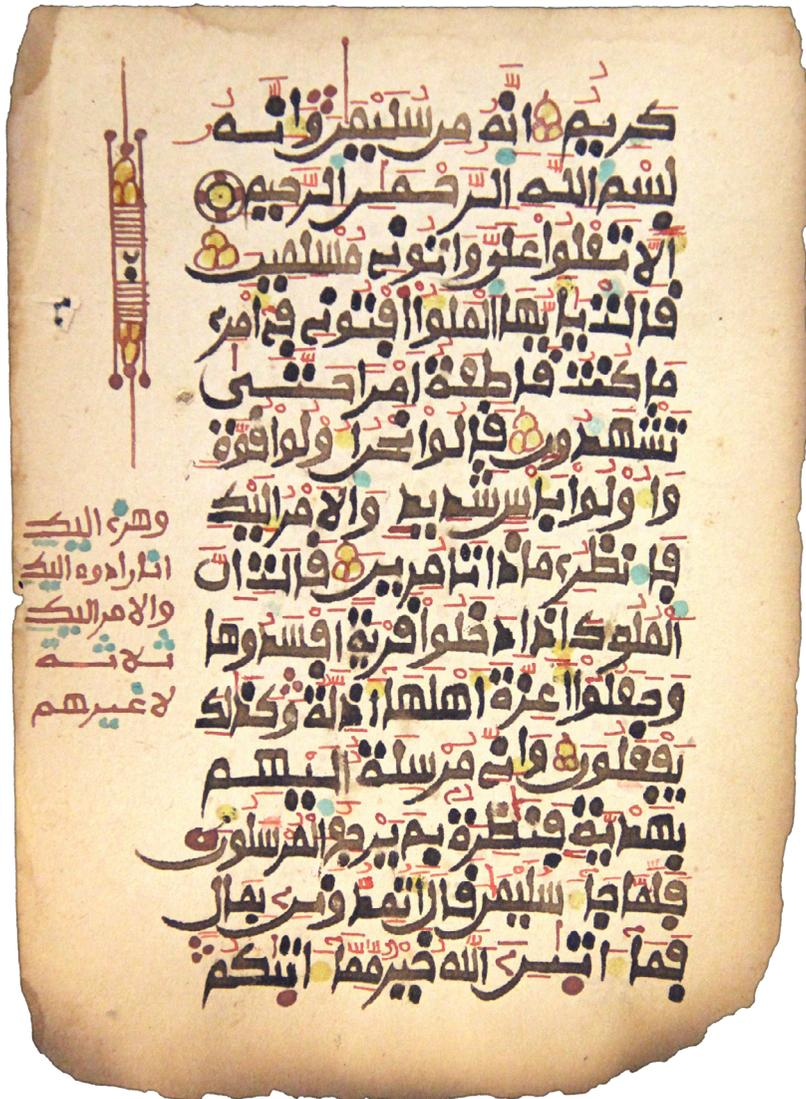 كريم انه من سليمن وانه
بسم الله الرحمن الرحيم
الا تعلوا على واتونى مسلمين
قالت يايها الملوا افتونى فى امرى
ما كنت قاطعة امرا حتى
تشهدون قالوا نحن اولوا قوة
واولوا باس شديد والامر اليك
فانظرى ماذا تامرين قالت ان
الملوك اذا دخلوا قرية افسدوها
وجعلوا اعزة اهلها اذلة وكذلك
يفعلون وانى مرسلة اليهم
بهدية فنظرة بم يرجع المرسلون
فلما جا سليمن قال اتمدونن بمال
فما اتين الله خير مما اتيكم
وهزى اليك
انا رادوه اليك
والامر اليك
ثلاثة
لا غيرهم